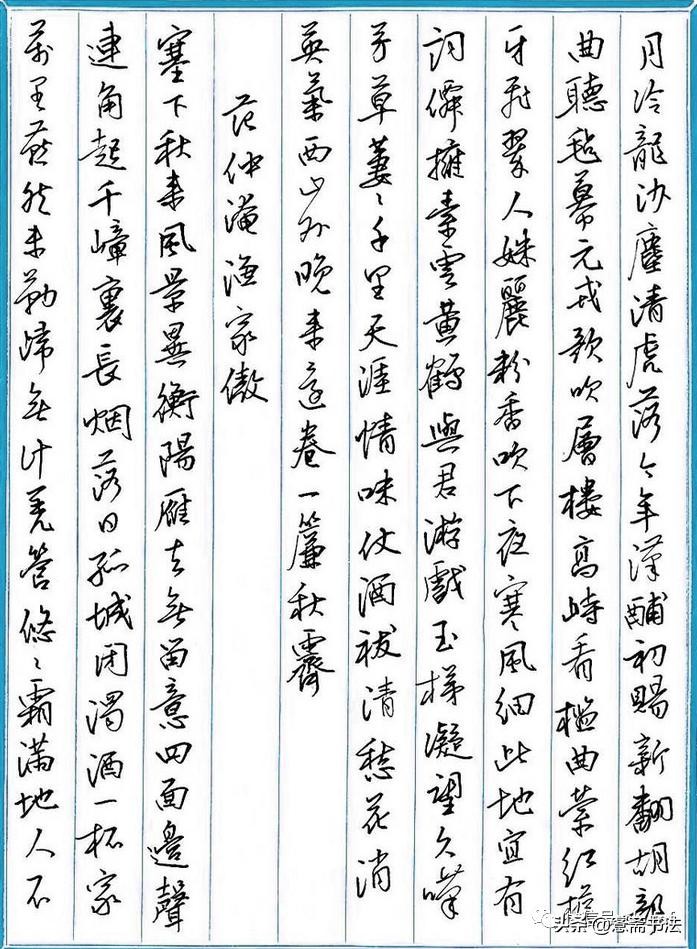 月冷龍沙塵清虎落今年漢酺初賜新翻胡部
曲聽氈幕元戎歌吹層樓高峙看檻曲縈紅檐
牙飛翠人姝麗粉香吹下夜寒風細此地宜有
詞僊擁素雲黃鶴與君游戲玉梯凝望久嘆
芳草萋〻千里天涯情味仗酒祓清愁花消
英氣西山外晚來還卷一簾秋霽
范仲淹漁家傲
塞下秋來風景異衡陽雁去無留意四面邊聲
連角起千嶂裏長烟落日孤城閉濁酒一杯家
萬里燕然未勒歸無計羌管悠〻霜滿地人不
头条@斋书法